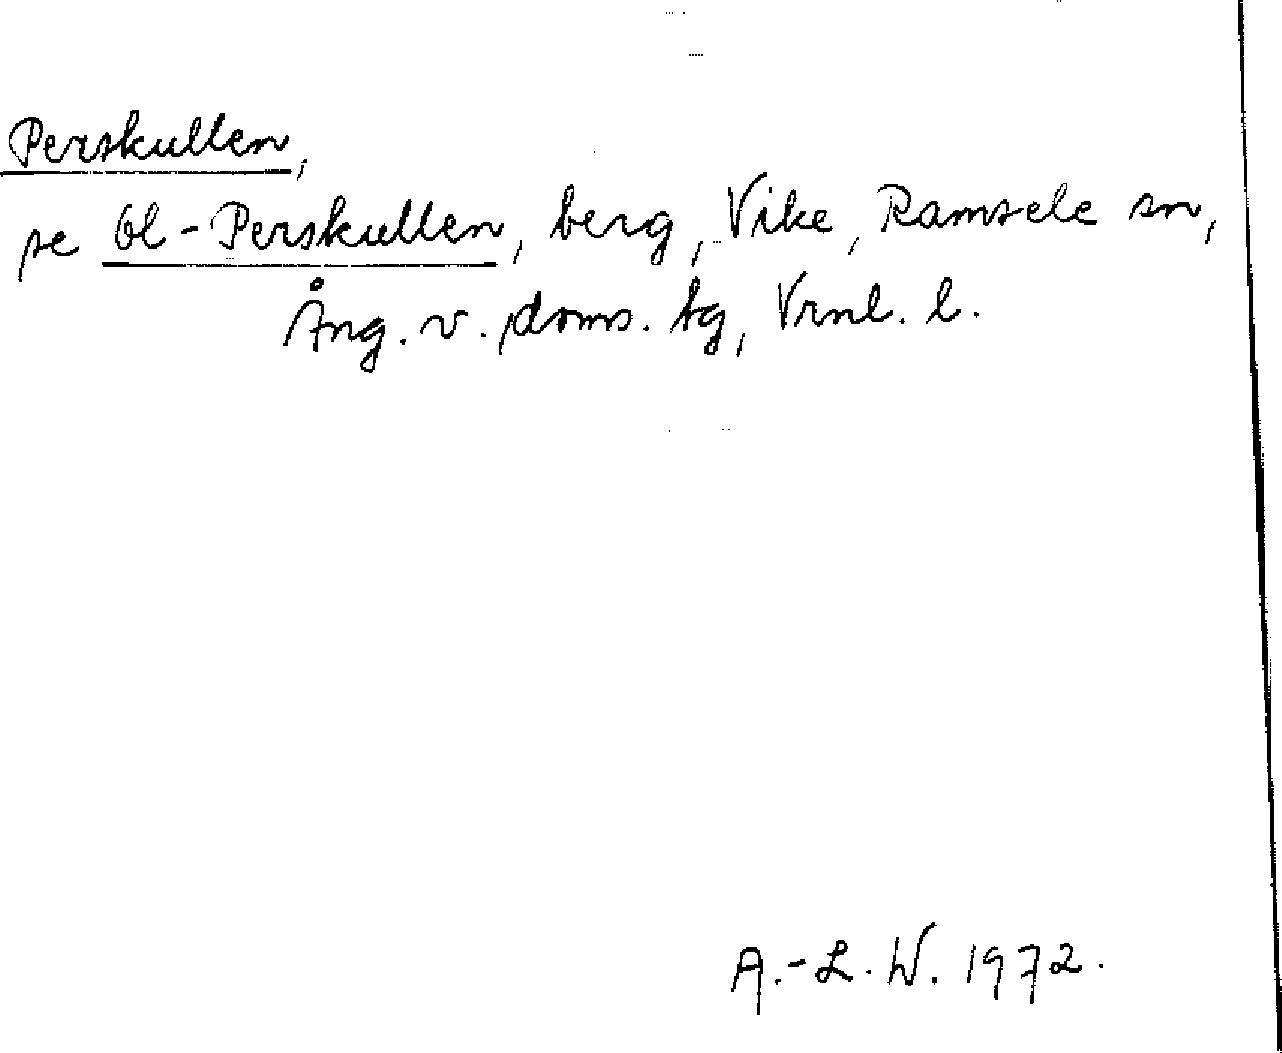 Perskullen,
se Ol-Perskullen, berg, Vike, Ramsele sn,
Ång. v. doms. tg, Vrnl. l.
A.-L. W. 1972.